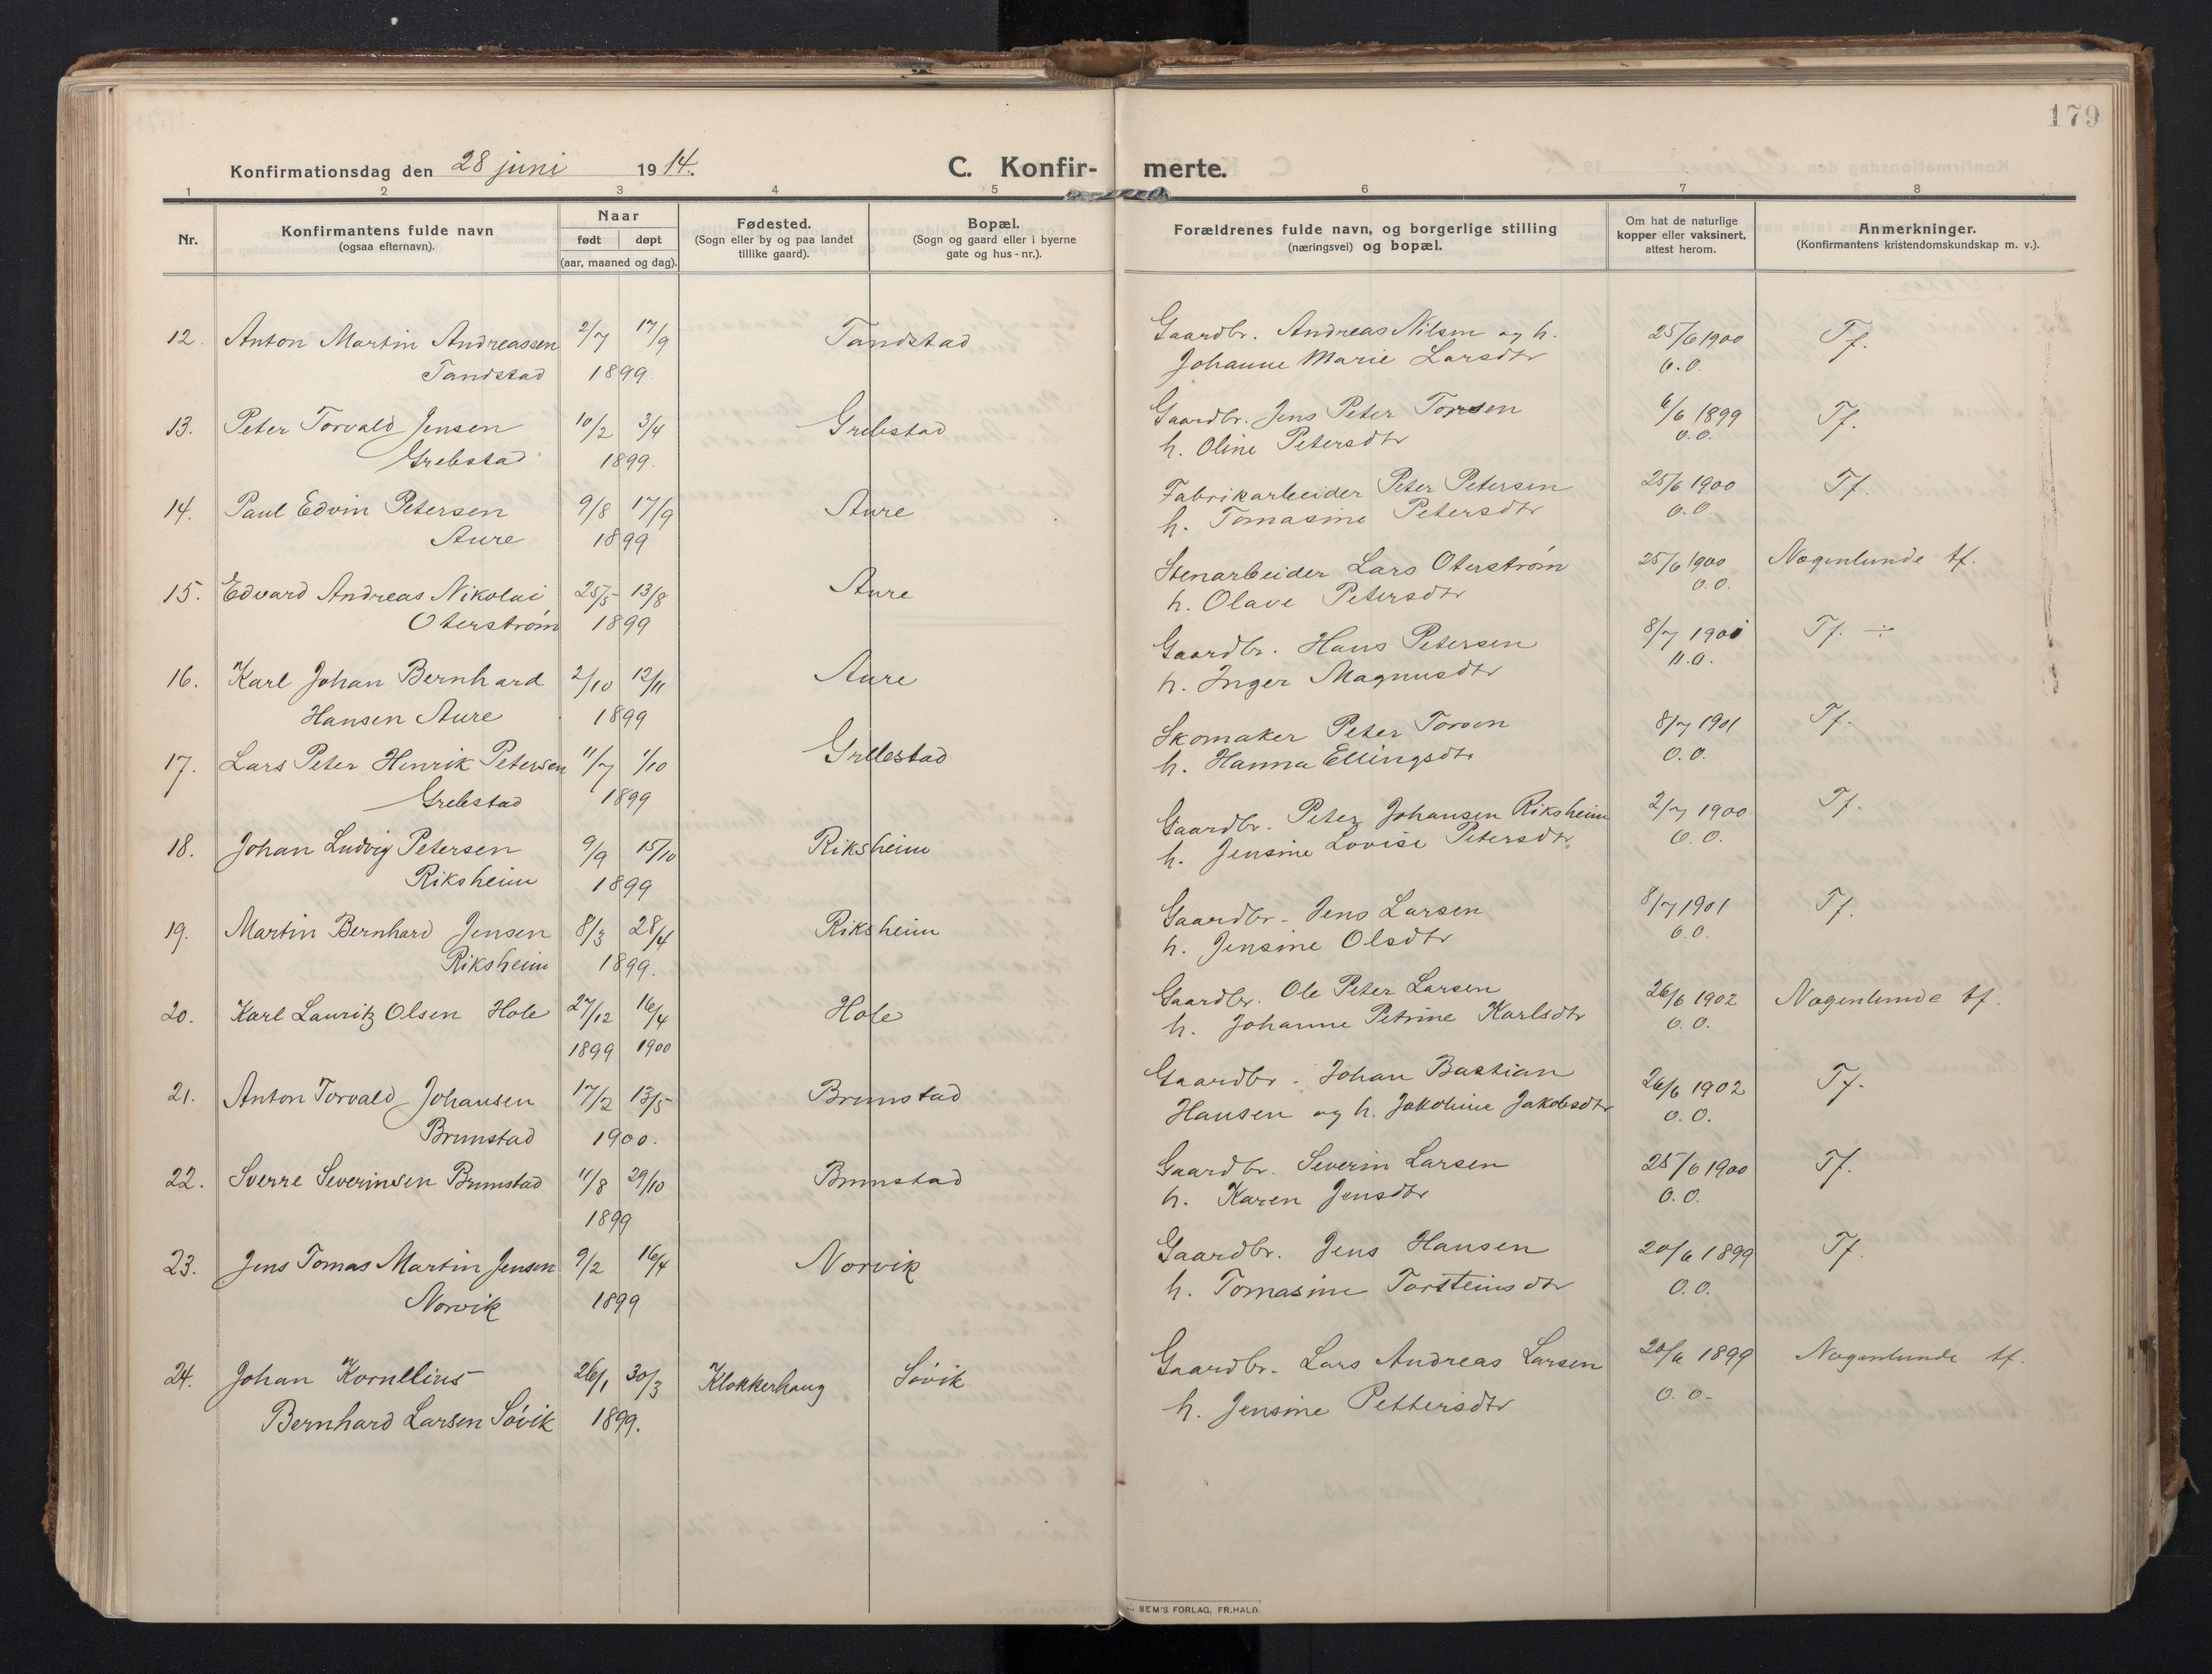 179
Konfirmationsdag den 28 juni 1914.
C. Konfir-merte.
1 2 3 4 5 6 7 8
Nr.
Konfirmantens fulde navn
(ogsaa efternavn).
Naar
født døpt
(aar, maaned og dag).
Fødested.
(Sogn eller by og paa landet
tillike gaard).
Bopæl.
(Sogn og gaard eller i byerne
gate og hus-nr.).
Forældrenes fulde navn, og borgerlige stilling
(næringsvei) og bopæl.
Om hat de naturlige
kopper eller vaksinert,
attest herom.
Anmerkninger.
(Konfirmantens kristendomskundskap m. v.).
12. Anton Martin Andreassen 2/7 17/9 Tandstad Gaardbr. Andreas Nilsen og h. 25/6 1900 Tf.
Tandstad 1899. Johanne Marie Larsdtr O.O.
13. Peter Torvald Jensen 10/2 3/4 Grebstad Gaardbr. Jens Peter Torsen 6/6 1899 Tf.
Grebstad 1899. h. Oline Petersdtr O.O.
14. Paul Edvin Petersen 9/8 17/9 Aure Fabrikarbeider Peter Petersen 25/6 1900 Tf.
Aure 1899 h. Tomasine Petersdtr O.O.
15. Edvard Andreas Nikolai 25/5 13/8 Aure Stenarbeider Lars Oterstrøm 25/6 1900 Nogenlunde tf.
Oterstrøm 1899 h. Olave Petersdtr O.O.
16. Karl Johan Bernhard 2/10 12/11 Aure Gaardbr. Hans Petersen 8/7 1901 Tf. ÷
Hansen Aure 1899 h. Inger Magnusdtr O.O.
17. Lars Peter Henrik Petersen 11/7 1/10 Grebestad Skomaker Peter Torsen 8/7 1901 Tf.
Grebstad 1899 h. Hanna Ellingsdtr O.O.
18. Johan Ludvig Petersen 9/9 15/10 Riksheim Gaardbr. Peter Johansen Riksheim 2/7 1900 Tf.
Riksheim 1899 h. Jensine Lovise Petersdtr O.O.
19. Martin Bernhard Jensen 8/3 28/4 Riksheim Gaardbr. Jens Larsen 8/7 1901 Tf.
Riksheim 1899. h. Jensine Olsdtr O.O.
20. Karl Lauritz Olsen Hole 27/12 16/4 Hole Gaardbr. Ole Peter Larsen 26/6 1902 Nogenlunde tf.
1899 1900 h. Johanne Petrine Karlsdtr O.O.
21. Anton Torvald Johansen 17/2 13/5 Brunstad Gaardbr. Johan Bastian 26/6 1902 Tf.
Brunstad 1900. Hansen og h. Jakobine Jakobsdtr O.O.
22. Sverre Severinsen Brunstad 11/8 29/10 Brunstad Gaardbr. Severin Larsen 25/6 1900 Tf.
1899 h. Karen Jensdtr O.O.
23. Jens Tomas Martin Jensen 9/2 16/4 Norvik Gaardbr. Jens Hansen 20/6 1899 Tf.
Norvik 1899 h. Tomasine Torsteinsdtr O.O.
24. Johan Kornelius 26/1 30/3 Klokkerhaug Søvik Gaardbr. Lars Andreas Larsen 20/6 1899 Nogenlunde tf.
Bernhard Larsen Søvik 1899. h. Jensine Pettersdtr O.O.
SEM'S FORLAG, FR.HALD.